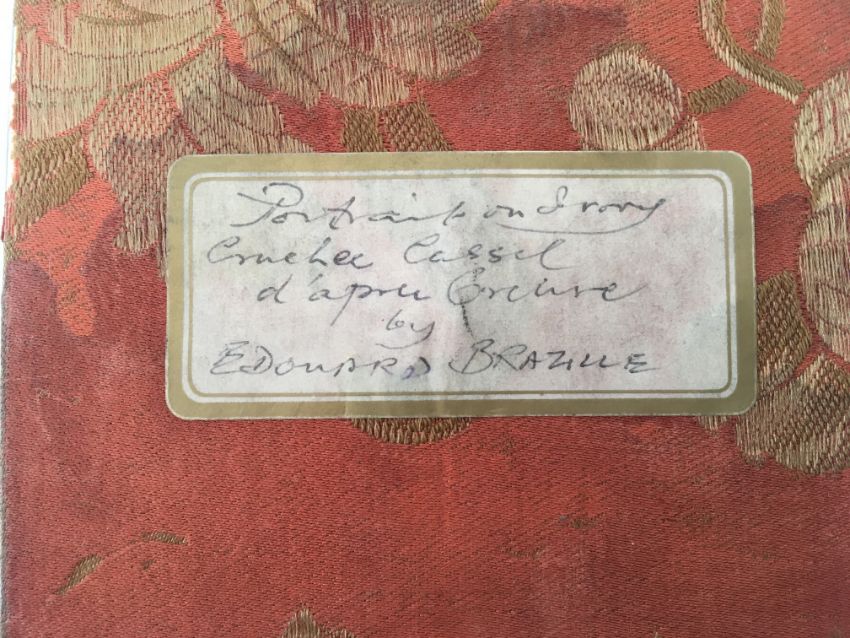 Portrait on Ivory
Cruchee Cassel
d'apres Greuze
by
EDOUARD BRAZILLE